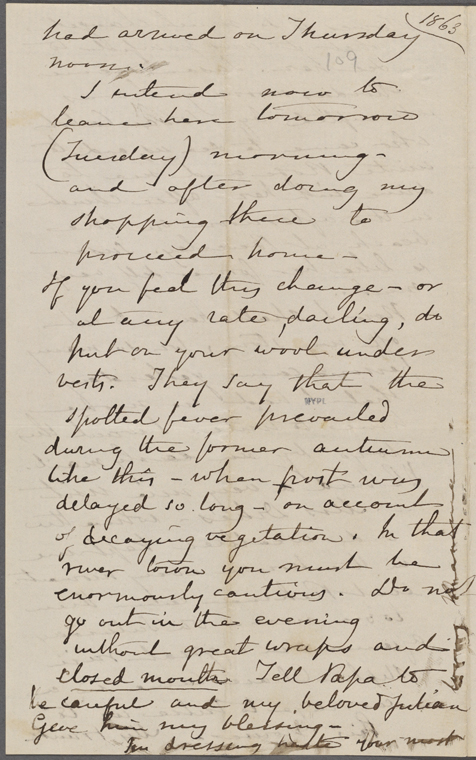 1863
109
had arrived on Thursday
noon.
I intend now to
leave here tomorrow
(Tuesday) morning -
and after doing my
shopping there to
proceed home -
If you feel this change - or
at any rate, darling, do
put on your wool under
vests. They say that the
NYPL
spotted fever prevailed
during the former autumn
like this - when frost was
delayed so long - on account
of decaying vegetation. In that
river town you must be
enormously cautious. Do not
go out in the evening
without great wraps and
closed mouth. Tell Papa to
be careful and my beloved Julian
Give him my blessing -
dressing your most